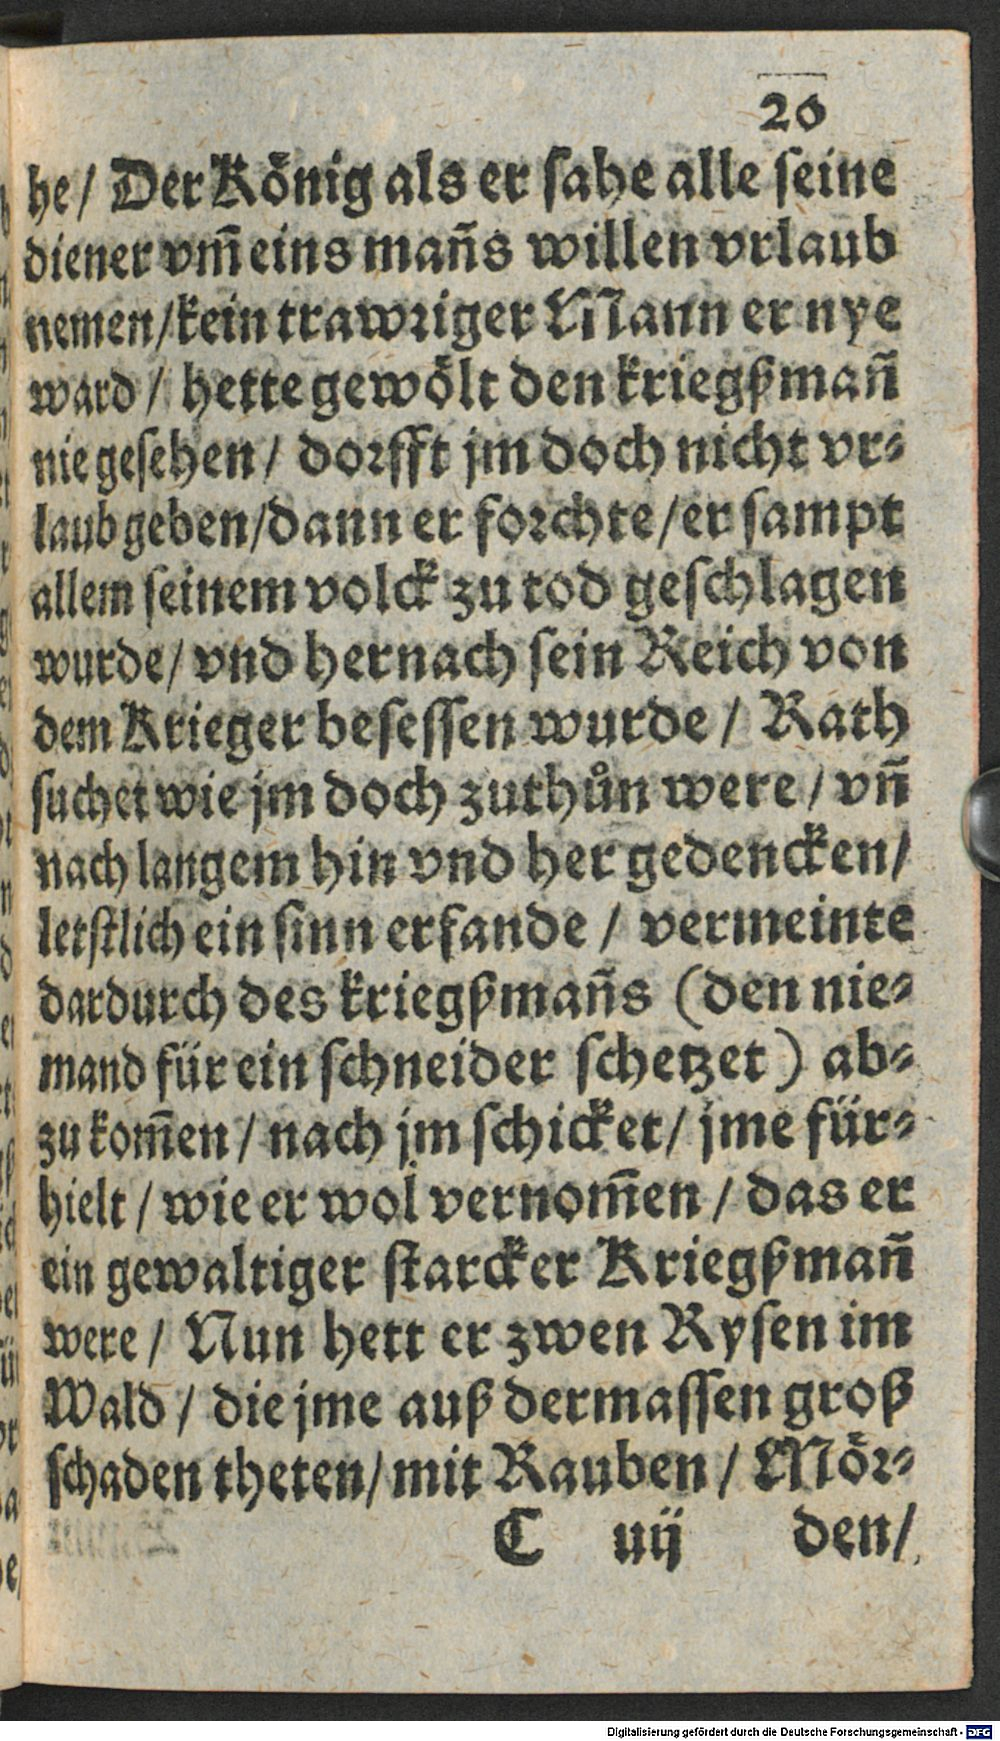 20
he/ Der König als er sahe alle seine
diener vm̃ eins mañs willen vrlaub
nemen/kein trawriger Mann er nye
ward / hette gewoͤlt den kriegßmañ
nie gesehen / dorfft jm doch nicht vr-
laub geben/dann er forchte/er sampt
allem seinem volck zu tod geschlagen
wurde/ vnd hernach sein Reich von
dem Krieger besessen wurde / Rath
suchet wie jm doch zuthůn were / vñ
nach langem hin vnd her gedencken/
letstlich ein sinn erfande / vermeinte
dardurch des kriegßmañs (den nie-
mand für ein schneider schetzet) ab-
zu kom̃en / nach jm schicket/ jme für-
hielt / wie er wol vernom̃en / das er
ein gewaltiger starcker Kriegßmañ
were / Nun hett er zwen Rysen im
Wald / die jme auß dermassen groß
schaden theten/ mit Rauben / Moͤr-
C uij den/
Digitalisierung gefördert durch die Deutsche Forschungsgemeinschaft - DFG